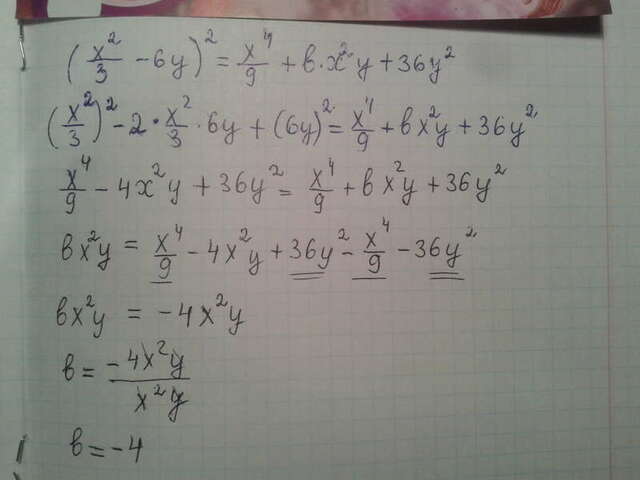 (x²/3 - 6y)² = x⁴/9 + в·x²y + 36y²
(x²/3)² - 2·x²/3·6y + (6y)² = x⁴/9 + вx²y + 36y²
x⁴/9 - 4x²y + 36y² = x⁴/9 + вx²y + 36y²
вx²y = x⁴/9 - 4x²y + 36y² - x⁴/9 - 36y²
вx²y = -4x²y
в = -4x²y/x²y
в = -4